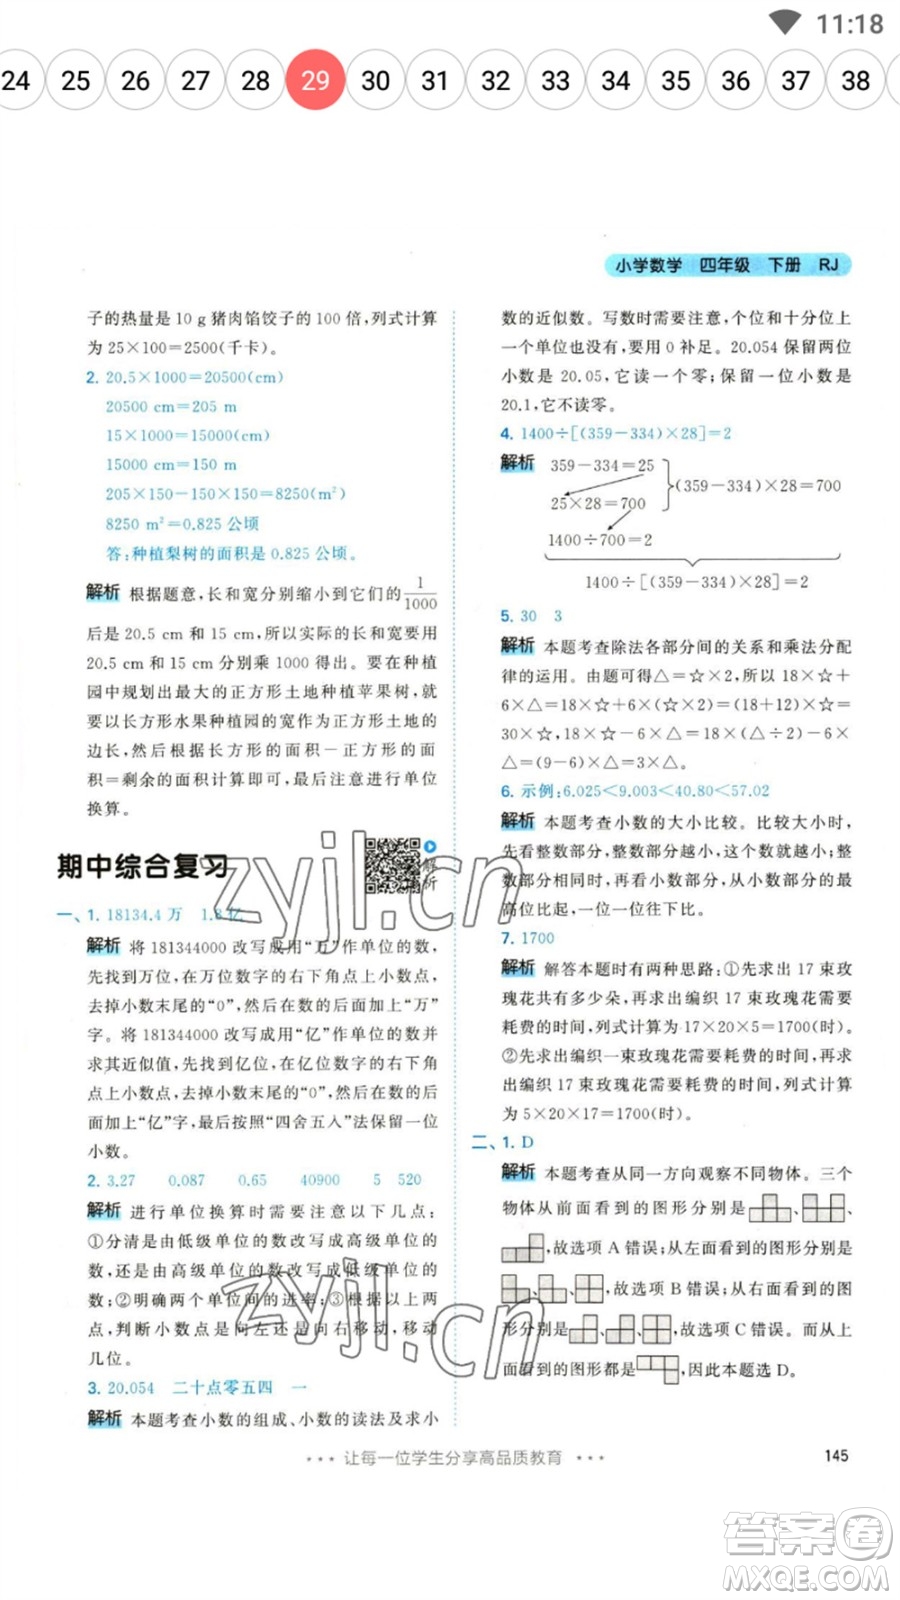 11:18
24 25 26 27 28 29 30 31 32 33 34 35 36 37 38
小学数学 四年级 下册 RJ
子的热量是 10 g 猪肉馅饺子的 100 倍,列式计算
为 25×100=2500(千卡)。
2. 20.5×1000=20500(cm)
20500 cm=205 m
15×1000=15000(cm)
15000 cm=150 m
205×150-150×150=8250(m²)
8250 m²=0.825 公顷
答:种植梨树的面积是 0.825 公顷。
解析 根据题意,长和宽分别缩小到它们的 1/1000
后是 20.5 cm 和 15 cm,所以实际的长和宽要用
20.5 cm 和 15 cm 分别乘 1000 得出。要在种植
园中规划出最大的正方形土地种植苹果树,就
要以长方形水果种植园的宽作为正方形土地的
边长,然后根据长方形的面积-正方形的面
积=剩余的面积计算即可,最后注意进行单位
换算。
期中综合复习
解析
一、1. 18134.4 万 1.8 亿
解析 将 181344000 改写成用“万”作单位的数,
先找到万位,在万位数字的右下角点上小数点,
去掉小数末尾的“0”,然后在数的后面加上“万”
字。将 181344000 改写成用“亿”作单位的数并
求其近似值,先找到亿位,在亿位数字的右下角
点上小数点,去掉小数末尾的“0”,然后在后面加
上“亿”字,最后按照“四舍五入”法保留一位
小数。
2. 3.27 0.087 0.65 40900 5 520
解析 进行单位换算时需要注意以下几点:
①分清是由低级单位的数改写成高级单位的
数,还是由高级单位的数改写成低级单位的
数;②明确两个单位间的进率;③根据以上两
点,判断小数点是向左还是向右移动,移动
几位。
3. 20.054 二十点零五四 一
解析 本题考查小数的组成、小数的读法及求小
数的近似数。写数时需要注意,个位和十分位上
一个单位也没有,要用 0 补足。20.054 保留两位
小数是 20.05,它读一个零;保留一位小数是
20.1,它不读零。
4. 1400÷[(359-334)×28]=2
解析 359-334=25
25×28=700
(359-334)×28=700
1400÷700=2
1400÷[(359-334)×28]=2
5. 30 3
解析 本题考查除法各部分间的关系和乘法分配
律的运用。由题可知△=☆×2,所以 18×☆+
6×△=18×☆+6×(☆×2)=(18+12)×☆=
30×☆,18×☆-6×△=18×(△÷2)-6×
△=(9-6)×△=3×△。
6. 示例:6.025<9.003<40.80<57.02
解析 本题考查小数的大小比较。比较大小时,
先看整数部分,整数部分越小,这个数就越小;
整数部分相同的,再看小数部分,从小数部分的最
高位比起,一位一位往下比。
7. 1700
解析 解答本题时有两种思路:①先求出 17 束玫
瑰花共有多少朵,再求出编织 17 束玫瑰花需要
耗费的时间,列式计算为 17×20×5=1700(时)。
②先求出编织一束玫瑰花需要耗费的时间,再
求出编织 17 束玫瑰花要耗费的时间,列式计算
为 5×20×17=1700(时)。
二、1. D
解析 本题考查从同一方向观察不同物体。三个
物体从前面看到的图形分别是、、
,故选项 A 错误;从左面看到的图形分别是
、、,故选项 B 错误;从右面看到的图
形分别是、、,故选项 C 错误。而从上
面看到的图形都是,因此本题选 D。
让每一位学生分享高品质教育
145
zyjl.cn
zyjl.cn
答案卷
MXQE.COM